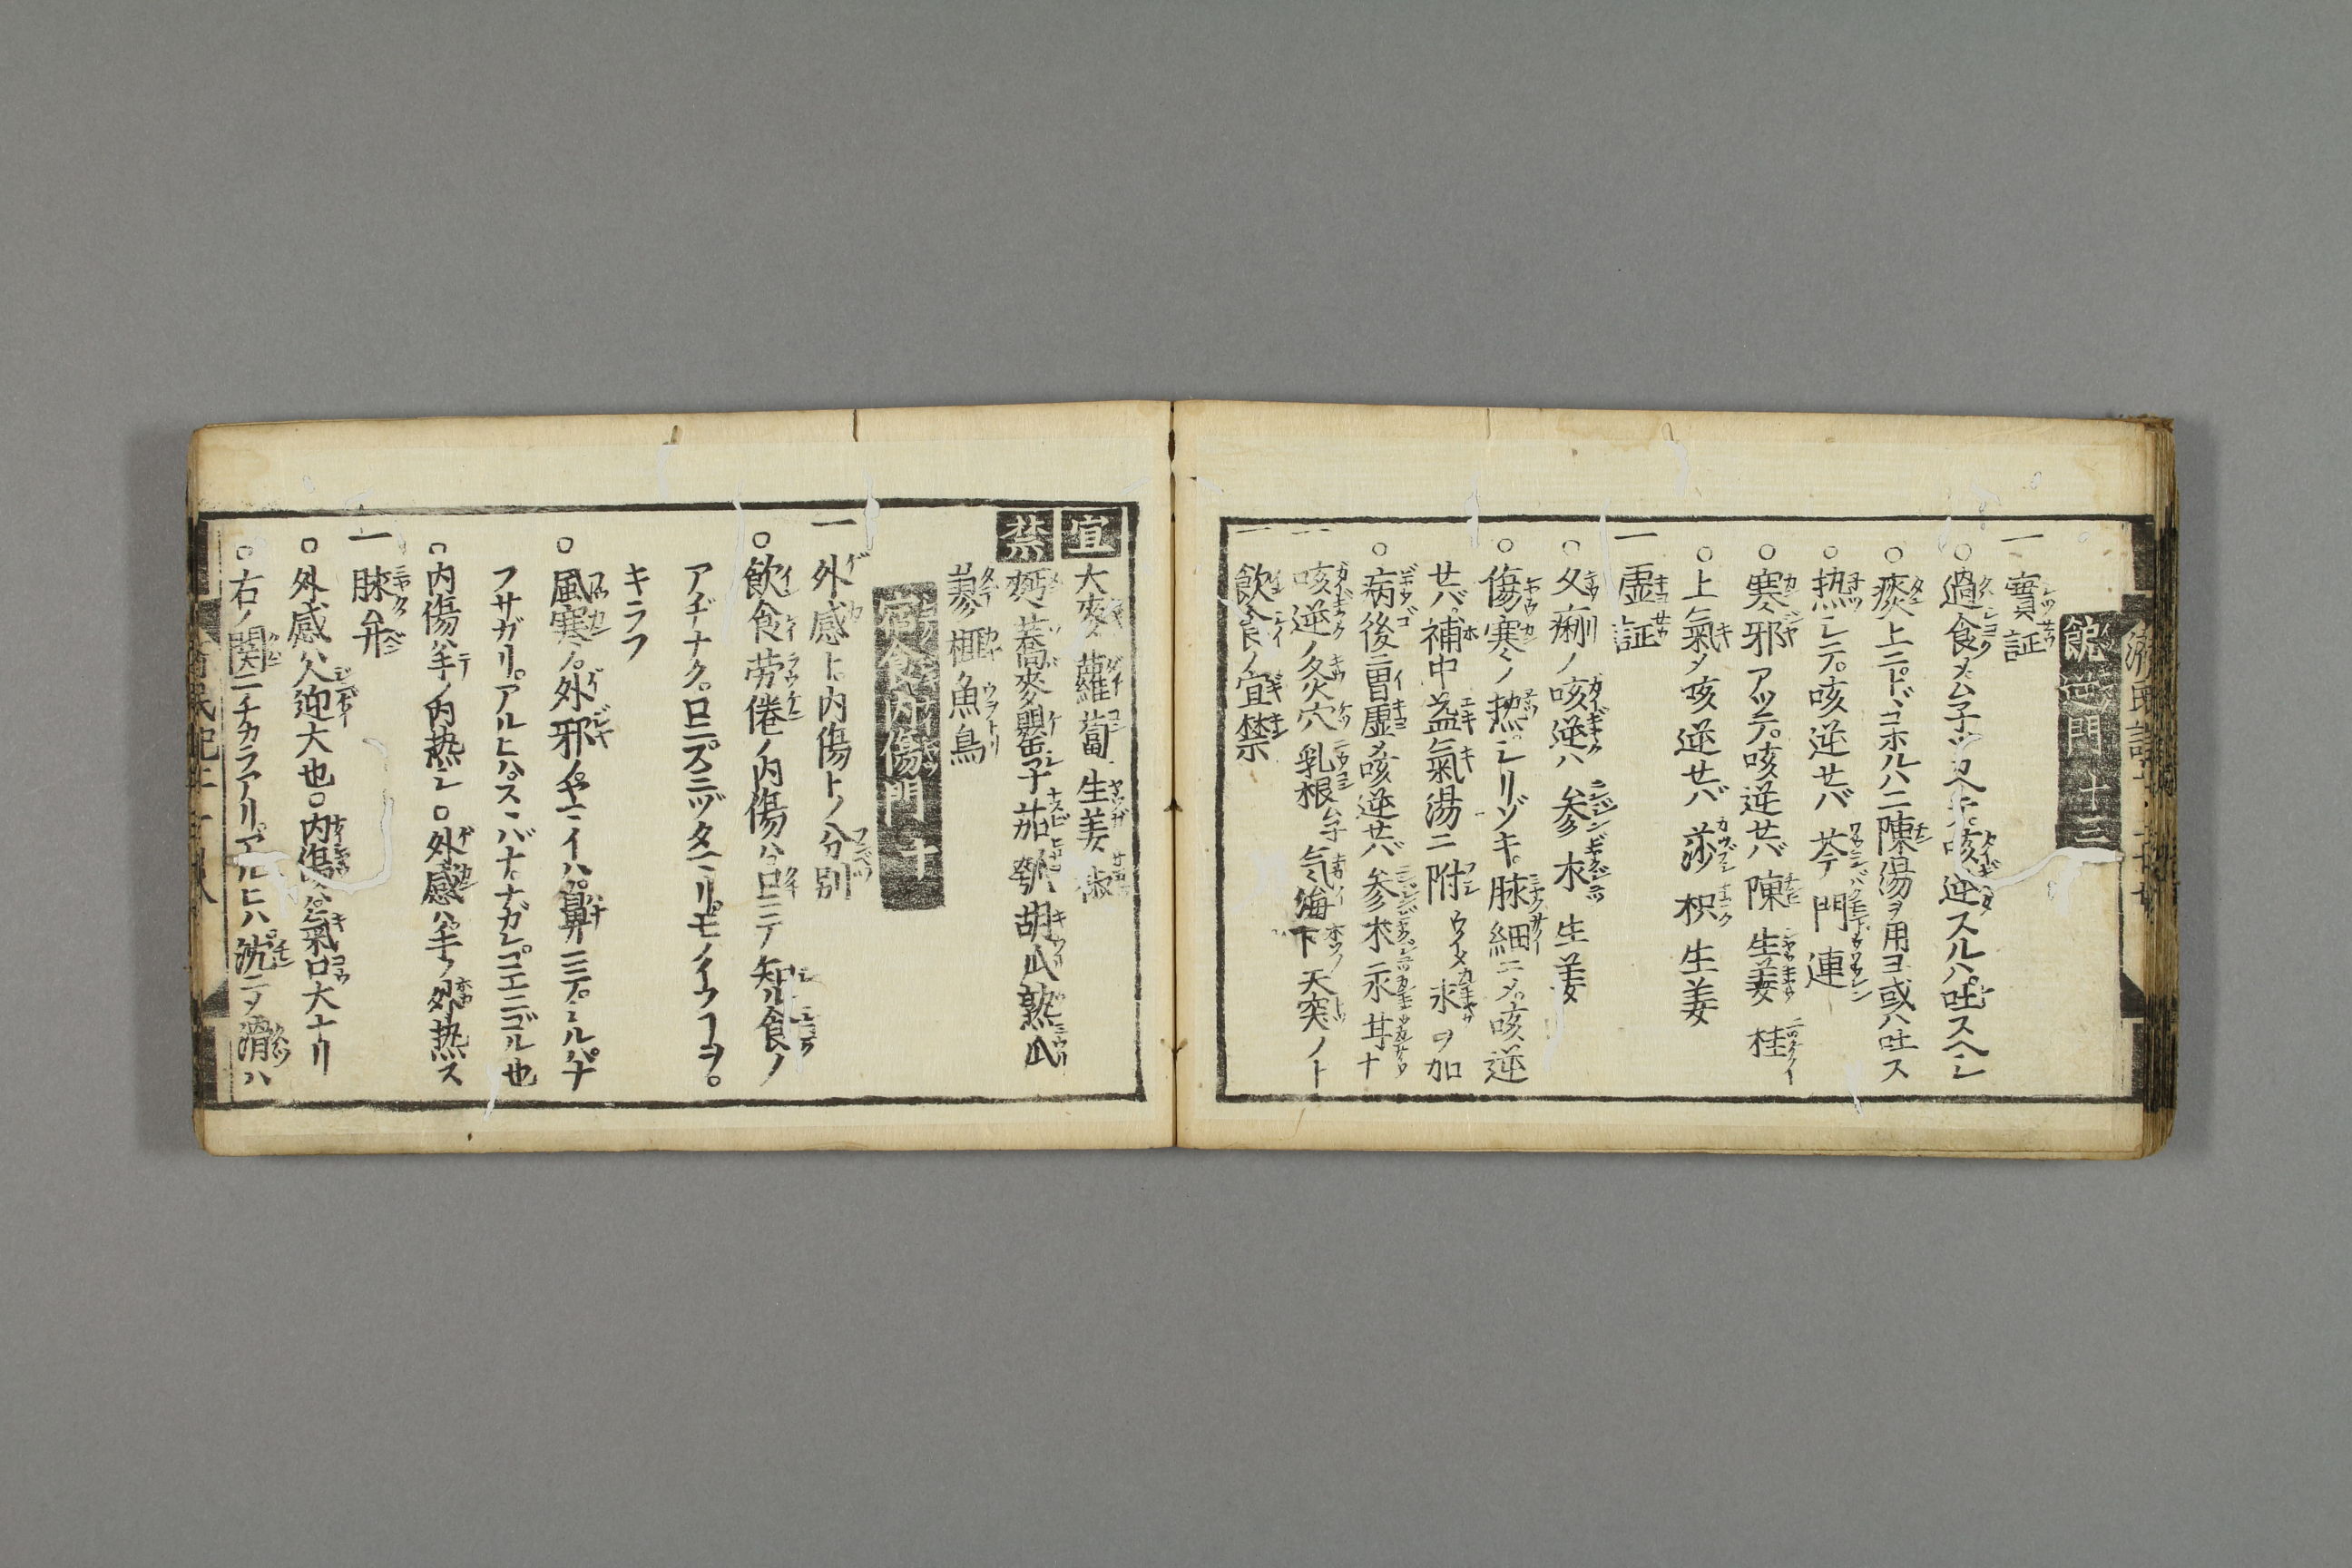 逆門十三
一實証
○過食メムネツカヘテ咳逆スルハ吐スヘシ
○痰上ニトドコホルハ二陳湯ヲ用ヨ或ハ吐ス
○熱シテ咳逆セバ 芩 門 連
○寒邪アツテ咳逆セバ 陳 生姜 桂
○上氣メ咳逆セバ 莎 枳 生姜
一虚証
○久痢ノ咳逆ハ 参 朮 生姜
○傷寒ノ熱シリゾキ脉細ニメ咳逆
セバ補中益氣湯ニ 附 ヲ加
○病後ニ胃虚メ咳逆セバ 参 朮 苓 甘 ナ
一咳逆ノ灸穴 乳根 気海 下 天突ノト
一飲食ノ宜禁
宜 大麥 蘿蔔 生姜 椒
禁 麪 蕎麥 罌子 茄 瓠 胡瓜 熟瓜
蓼 榧 魚鳥
食内傷門十
一外感ト内傷トノ分別
○飲食労倦ノ内傷ハ口ニテ知ル食ノ
アヂナク口ニズニヅタマリモノイフヿヲ
キラフ
○風寒ノ外邪ノヤマイハ鼻ニテミルハナ
フサガリアルヒハススバナナガレコエニゴル也
○内傷ハ手ノ内熱シ○外感ハ手ノ外熱ス
一脉弁
○外感ハ人迎大也○内傷ハ氣口大ナリ
○右ノ関ニチカラアリアルヒハ沈ニメ滑ハ